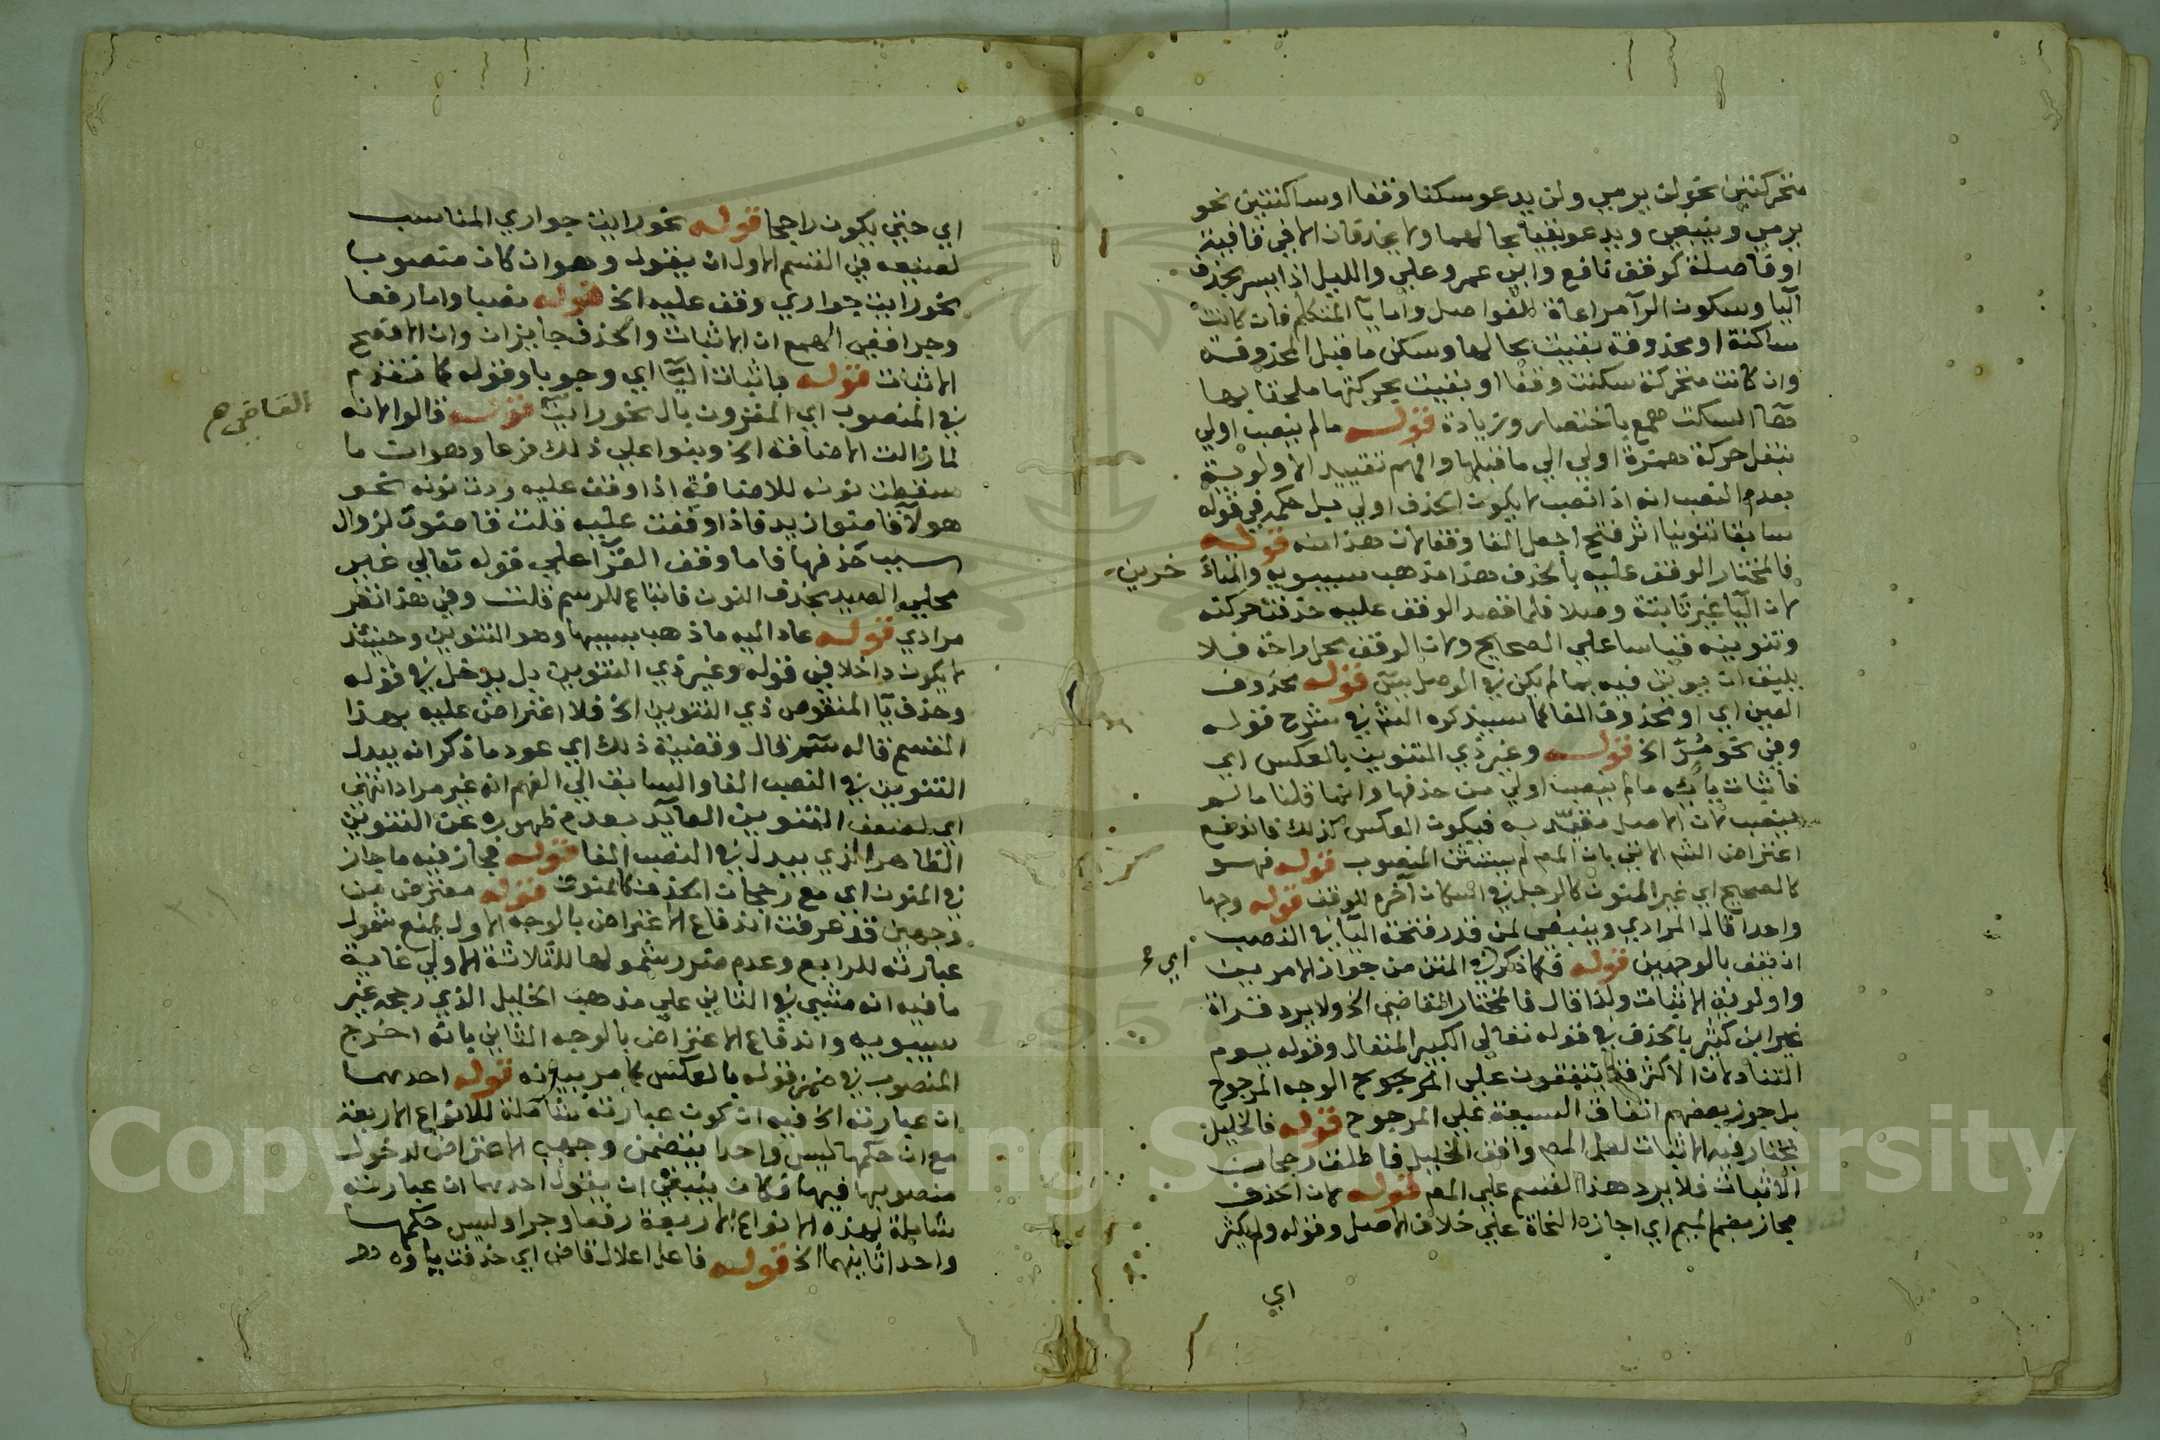 متحركتين نحو لن يرمي ولن يدعو سكنا وقفا او ساكنتين نحو
يرمي وينبغي ويدعو بقيا بحالهما ولا يحذفان الا في قافية
او فاصلة كوقف نافع وابي عمرو علي والليل اذا يسر بحذف
اليا وسكون الرا مراعاة للفواصل واما يا المتكلم فان كانت
ساكنة او محذوفة بقيت بحالها وسكن ما قبل المحذوفة
وان كانت متحركة سكنت وقفا او بقيت بحركتها ملحقا بها
هاء السكت همع باختصار وزيادة قوله ما لم ينصب اولي
بنقل حركة همزة اولي الي ما قبلها وافهم تقييد الاولوية
بعدم النصب انه اذا نصب لا يكون الحذف اولي بل حكمه في قوله
سابقا تنوينا اثر فتح اجعل الفا وقفا لان هذا منه قوله
فالمختار الوقف عليه بالحذف هذا مذهب سيبويه والمتأ خرين
لان اليا غير ثابتة وصلا فلما قصد الوقف عليه حذفت حركته
وتنوينه قياسا علي الصحيح ولان الوقف محل راحة فلا
يليق ان يوتي فيه بما لم يكن في الوصل يس قوله محذوف
العين اي او محذوف الفا كما سيذكره الش في شرح قوله
وفي نحو مر الخ قوله وغير ذي التنوين بالعكس اي
فاثبات يائه ما لم ينصب اولي من حذفها وانما قلنا ما لم
ينصب لان الاصل مقيد به فيكون العكس كذلك فاندفع
اعتراض الش الاتي بان المص لم يستثن المنصوب قوله فهو
كالصحيح اي غير المنون كالرجل في اسكان آخره للوقف قوله وجها
واحدا قال المرادي وينبغي لمن قدر فتحة اليا في النصب
ان يقف بالوجهين قوله فكما ذكر في المتن من جواز الامرين اي
واولوية الاثبات ولذا قال فالمختار القاضي الخ ولا يرد قراة
غير ابن كثير بالحذف في قوله تعالي الكبير المتعال وقوله يوم
التناد لان الاكثر قد يتفقون علي المرجوح الوجه المرجوح
بل جوز بعضهم اتفاق السبعة علي المرجوح قوله فالخليل
يختار فيه الاثبات لعل المص وافق الخليل فاطلق رجحان
الاثبات فلا يرد هذا القسم علي المص قوله لان الحذف
مجاز بضم الميم اي اجازه النحاة علي خلاف الاصل وقوله ولم يكثر
اي
اي حتي يكون راجحا قوله نحو رايت جواري المناسب
لصنيعه في القسم الاول ان يقول وهو ان كان منصوبا
نحو رايت جواري وقف عليه الخ قوله نصبا واما رفعا
وجرا ففي الهمع ان الاثبات والحذف جايزان وان الافصح
الاثبات قوله باثبات اليا اي وجوبا وقوله كما تقدم
في المنصوب اي المقرون بال نحو رايت القاضي قوله قالوا لانه
لما زالت الاضافة الخ وبنوا علي ذلك فرعا وهو ان ما
سقطت نونه للاضافة اذا وقف عليه ردت نونه نحو
هولآ قاصتوا زيد فاذا وقفت عليه قلت قاصتون لزوال
سبب حذفها فاما وقف القرا علي قوله تعالي غير
محلي الصيد بحذف النون فاتباع للرسم قلت وفي هذا نظر
مرادي قوله عاد اليه ما ذهب بسببها وهو التنوين وحينئذ
لا يكون داخلا في قوله وغير ذي التنوين بل يدخل في قوله
وحذف يا المنقوص ذي التنوين الخ فلا اعتراض عليه بهذا
القسم قاله سم قال وقضية ذلك اي عود ما ذكر انه يبدل
التنوين في النصب الفا والسابق الي الفهم انه غير مراد انتهي
اي لضعف التنوين العايد بعدم ظهوره عن التنوين
الظاهر الذي يبدل في النصب الفا قوله فجاز فيه ما جاز
في المنون اي مع رجحان الحذف كالمنون قوله معترض من
وجهين قد عرفت اندفاع الاعتراض بالوجه الاول بمنع شمول
عبارته للرابع وعدم ضرر شمولها للثلاثة الاولي غاية
ما فيه انه مشي في الثاني علي مذهب الخليل الذي رجحه غير
سيبويه واندفاع الاعتراض بالوجه الثاني بانه اخرج
المنصوب في ضمن قوله بالعكس كما مر بيانه قوله احدهما
ان عبارته الخ فيه ان كون عبارته شاملة للانواع الاربعة
مع ان حكمها ليس واحدا يتضمن وجهي الاعتراض لدخول
منصوبها فيها فكان ينبغي ان يقول احدهما ان عبارته
شاملة لهذه الانواع الاربعة رفعا وجرا وليس حكمها
واحدا ثانيهما الخ قوله فاعل اعلال قاض اي حذفت ياؤه